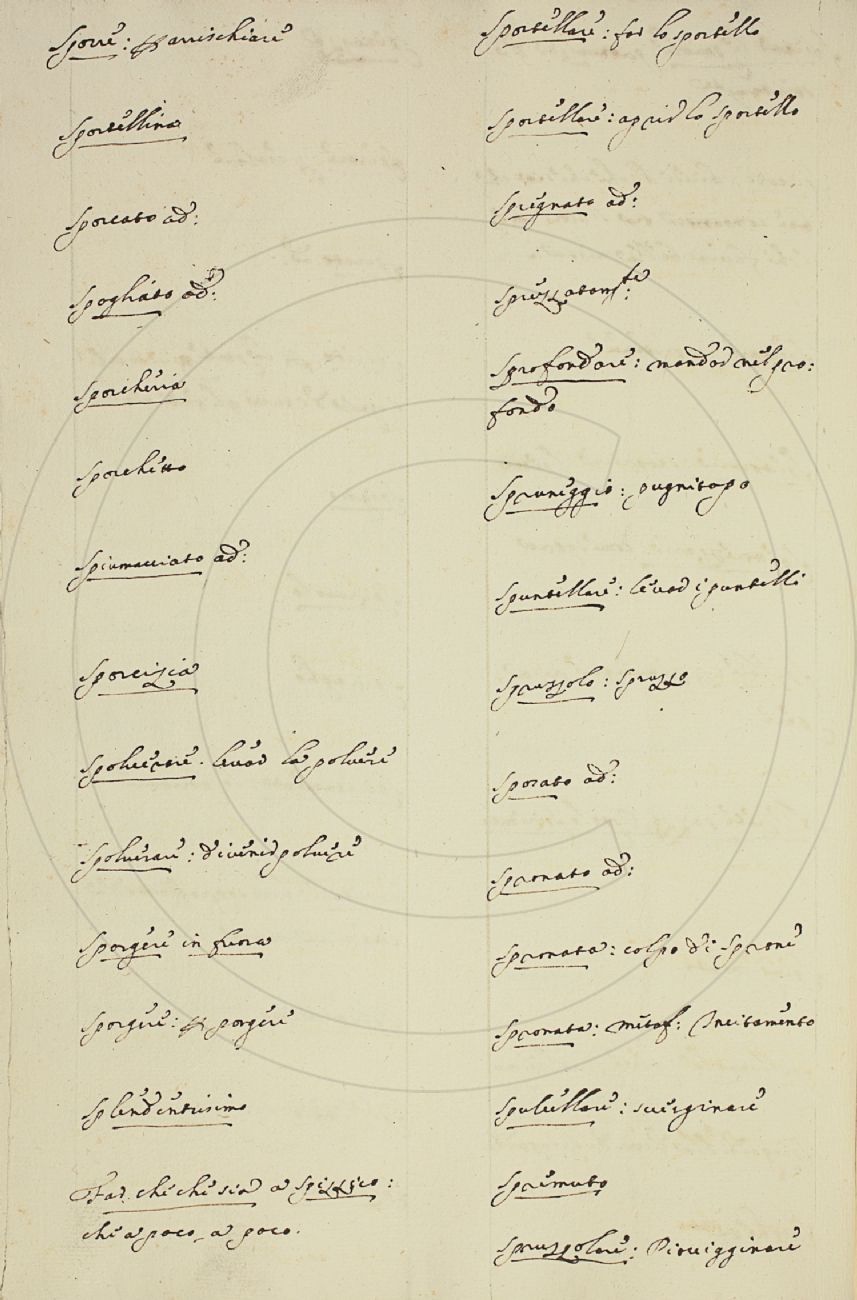 Sporre: p arrischiare
Sportellina
Sporcato ad:
Spogliato ad:
Sporcheria
Sporchetto
Spiumacciato ad:
Sporcizia
Spolverare. levar la polvere
Spolverare: divenir polvere
Sporgere in fuora
Sporgere: p porgere
Splendentissimo
Far che che sia a spizzico:
chi a poco, a poco.
Sportellare: far lo sportello
Sportellare: aprir lo sportello
Spregnato ad:
Sprezzatamte:
Sprofondare: mandar nel pro:
fondo
Spruneggio: pugnitopo
Spuntellare: levar i puntelli
Spruzzolo: Spruzzo
Sporato ad:
Spronato ad:
Spronata: colpo di sprone
Spronata: metaf: Incitamento
Spulcellare: sverginare
Spremuto
Spruzzolare: Piovigginare